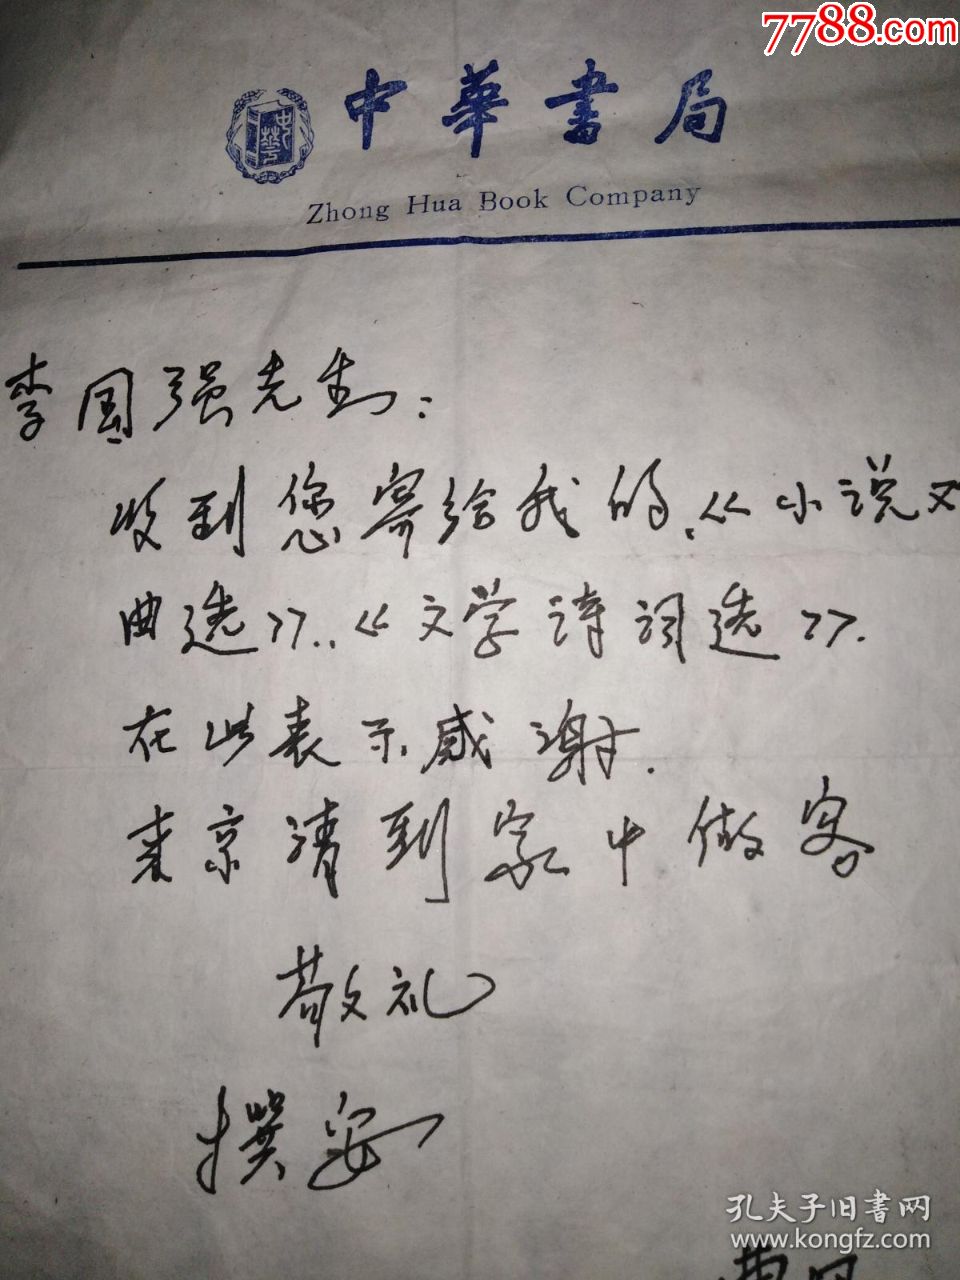 7788.com
中華書局
Zhong Hua Book Company
李国强先生：
收到您寄给我的《小说
曲选》.《文学诗词选》.
在此表示感谢.
来京请到家中做客
敬礼
撰安
孔夫子旧书网
www.kongfz.com